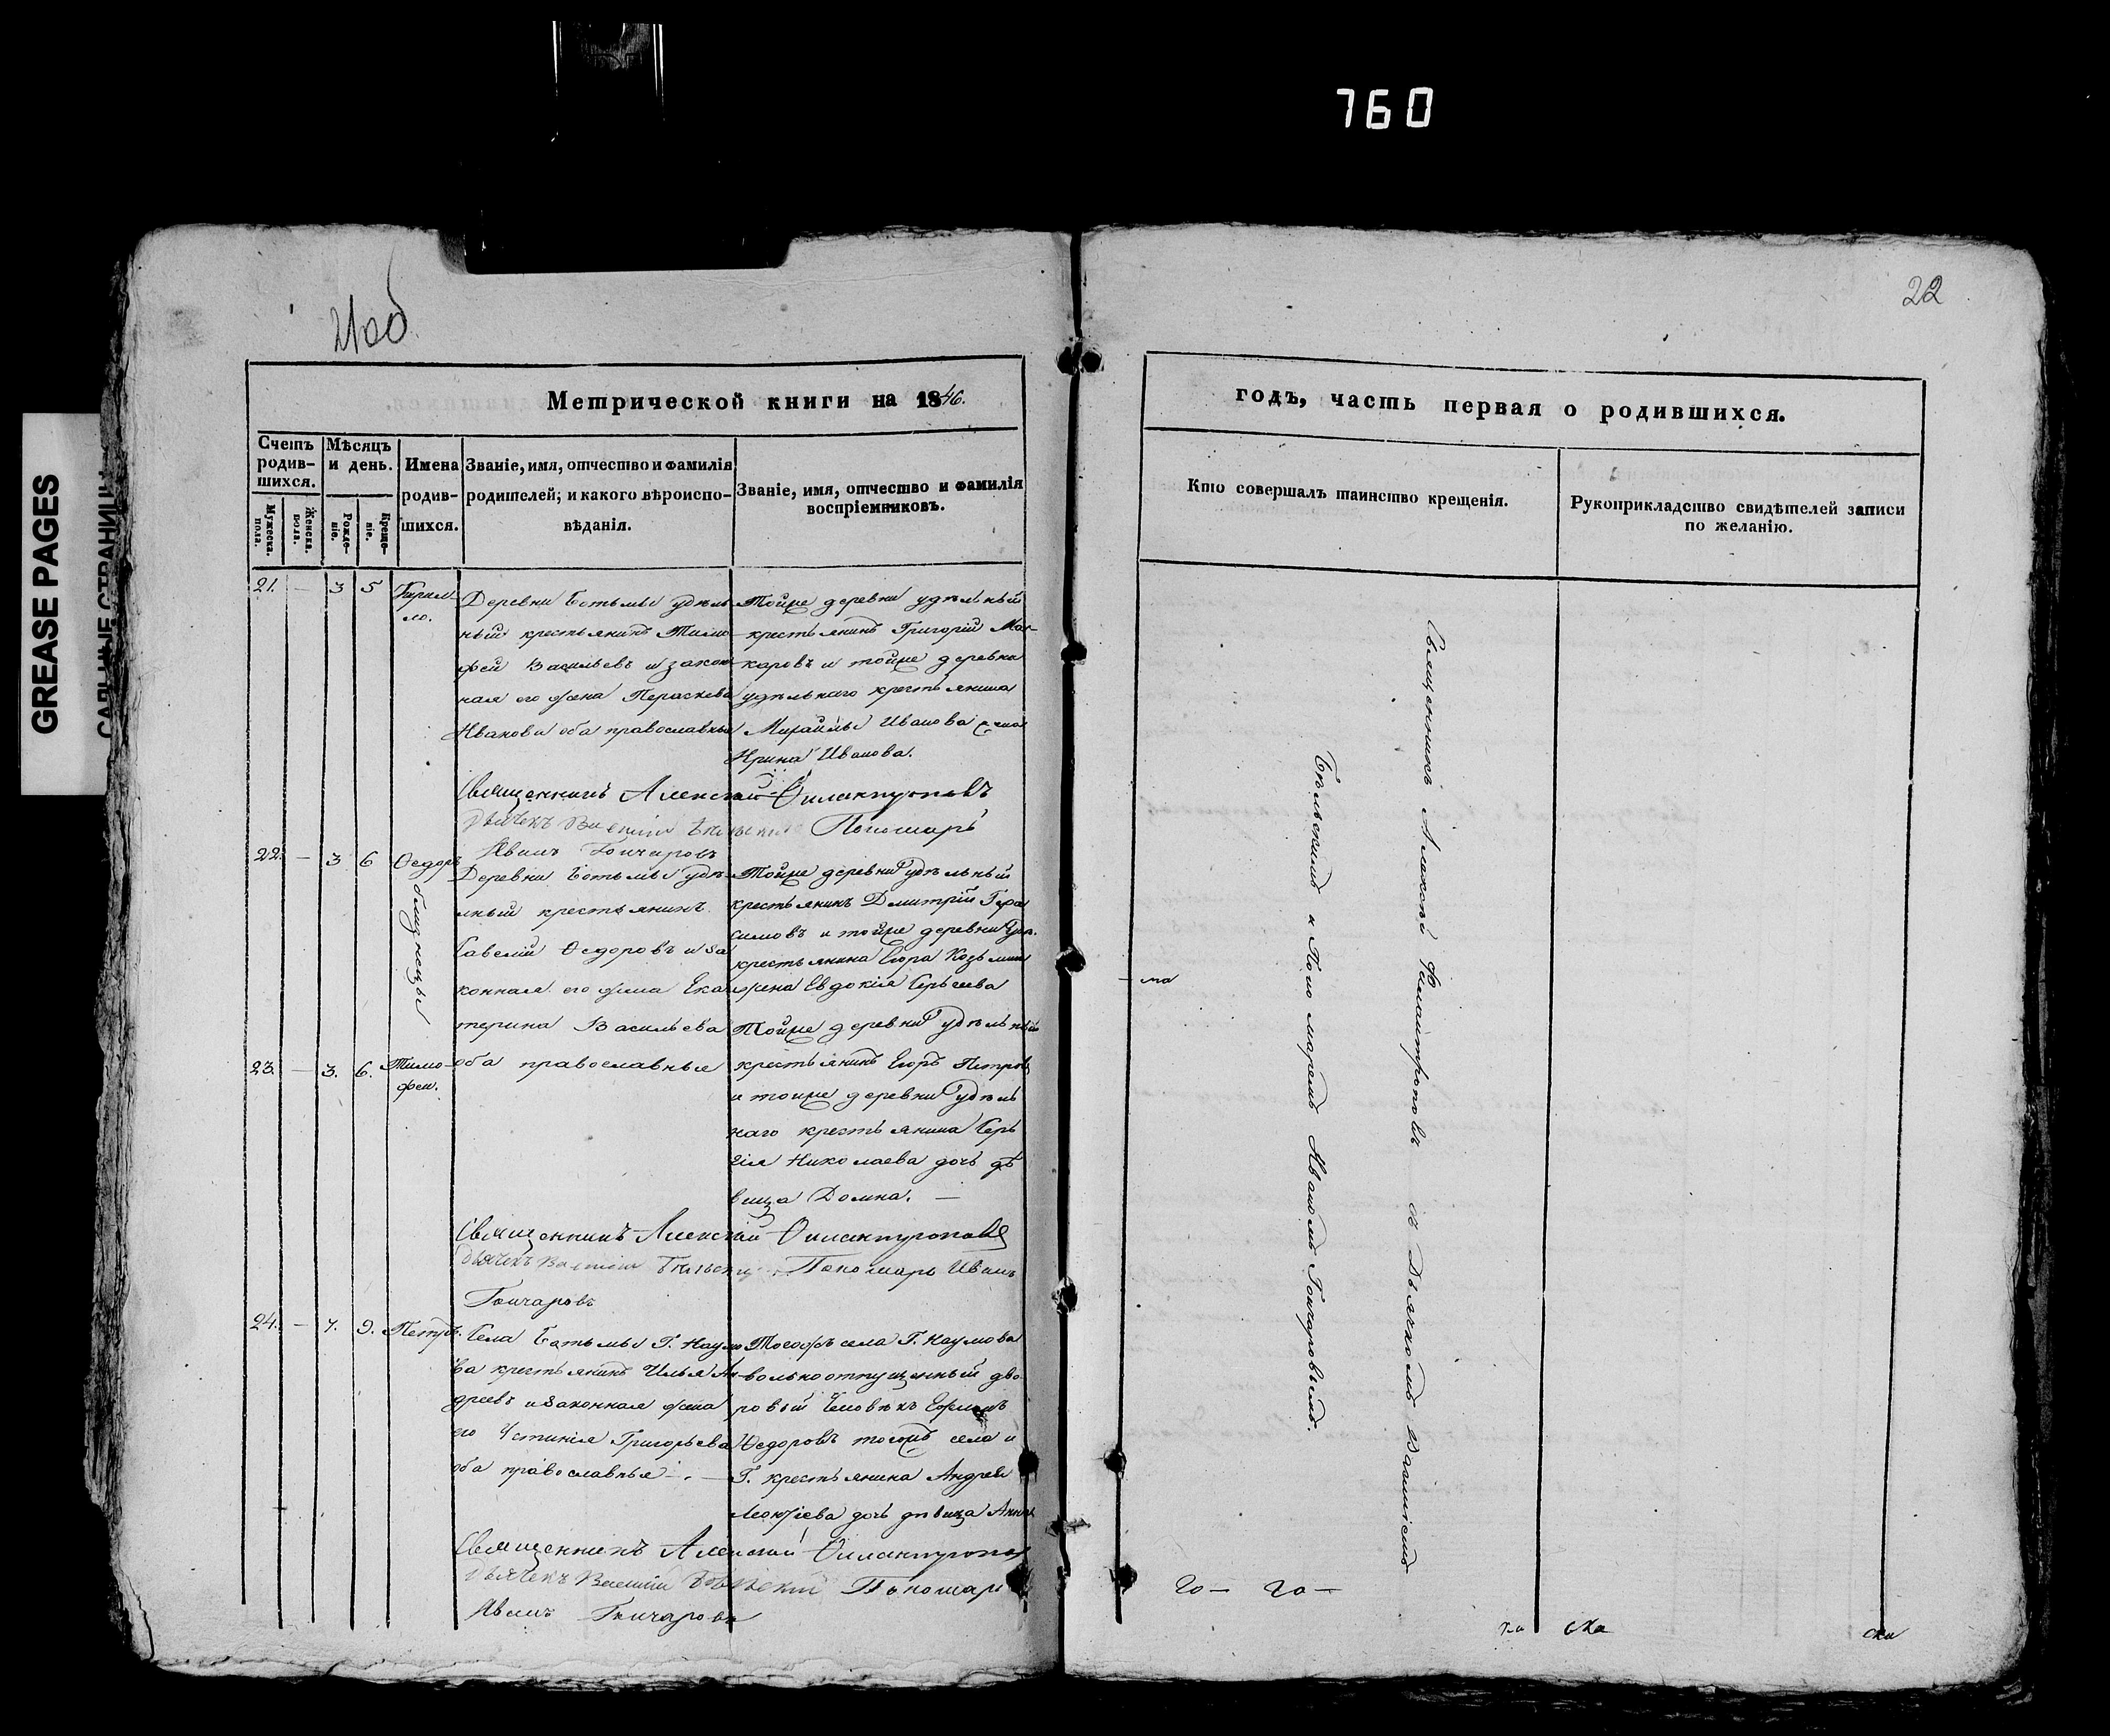 760
GREASE PAGES
21об
22
Метрической книги на 1846.
годъ, часть первая о родившихся.
Счетъ родив-шихся.
Мужеска. пола.
Женска. пола.
Мѣсяцъ и день.
Рожде-ніе.
Креще-ніе.
Имена родив-шихся.
Званіе, имя, отчество и фамилія родителей, и какого вѣроиспо-вѣданія.
Званіе, имя, отчество и фамилія воспріемниковъ.
Кто совершалъ таинство крещенія.
Рукоприкладство свидѣтелей записи по желанію.
21. — 3 5 Кирил-
ло.
Деревни Ботьмы удѣль
ный крестьянинъ Тимо-
фей Васильевъ и закон
ная его жена Пераскева
Иванова оба православныя
Тойже деревни удѣльный
крестьянинъ Григорій Ма-
каровъ и тойже деревни
удѣльнаго крестьянина
Михайлы Иванова жена
Ирина Иванова.
Священникъ Алексѣй Филантроповъ
Дьячекъ Василій Бѣльскій Пономарь
Иванъ Гончаровъ
22. — 3 6 Ѳедоръ
близнецы
Деревни Ботьмы удѣ-
льный крестьянинъ
Савелій Ѳедоровъ и за
конная его жена Ека
терина Васильева
оба православные
Тойже деревни удѣльный
крестьянинъ Дмитрій Гера
симовъ и тойже деревни удѣ.
крестьянина Егора Козьмина
жена Евдокія Сергеева
23. — 3. 6. Тимо-
фей.
Тойже деревни удѣльный
крестьянинъ Егоръ Петровъ
и тойже деревни удѣль
наго крестьянина Сер
гія Николаева дочь дѣ
вица Домна. —
Священникъ Алексѣй Филантроповъ
Дьячекъ Василій Бѣльскій Пономарь Иванъ
Гончаровъ
24. — 7. 9. Петръ.
Села Ботьмы Г. Наумо
ва крестьянинъ Илья Ан-
дреевъ и законная жена
его Устинія Григорьева
оба православныя
Тогожъ села Г. Наумова
вольноотпущенный дво
ровый человѣкъ Ефимъ
Ѳедоровъ тогожъ села и
Г. крестьянина Андрея
Леонтіева дочь дѣвица Анна
Священникъ Алексѣй Филантроповъ
Дьячекъ Василій Бѣльскій Пономарь
Иванъ Гончаровъ
Священникъ Алексѣй Филантроповъ съ Дьячкомъ Василіемъ
Бѣльскимъ и Пономаремъ Иваномъ Гончаровымъ.
— ма
го— го—
ска